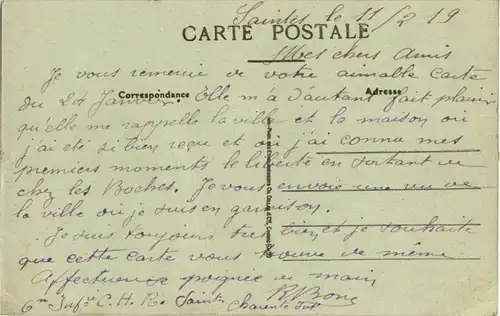 Saintes le 11/2 19
CARTE POSTALE
Mes chers Amis
Je vous remercie de votre aimable carte
Correspondance
Adresse
du 24 Janvier. Elle m'a d'autant fait plaisir
qu'elle me rappelle la ville et la maison où
j'ai été si bien reçu et où j'ai connu mes
premiers moments de liberté en sortant de
chez les Boches. Je vous envoie une vue de
la ville où je suis en garnison.
Je suis toujours très bien et je souhaite
que cette carte vous trouve de même.
Affectueuse poignée de main
R Bone
6me Infie C. H. R. Saintes Charente Infre